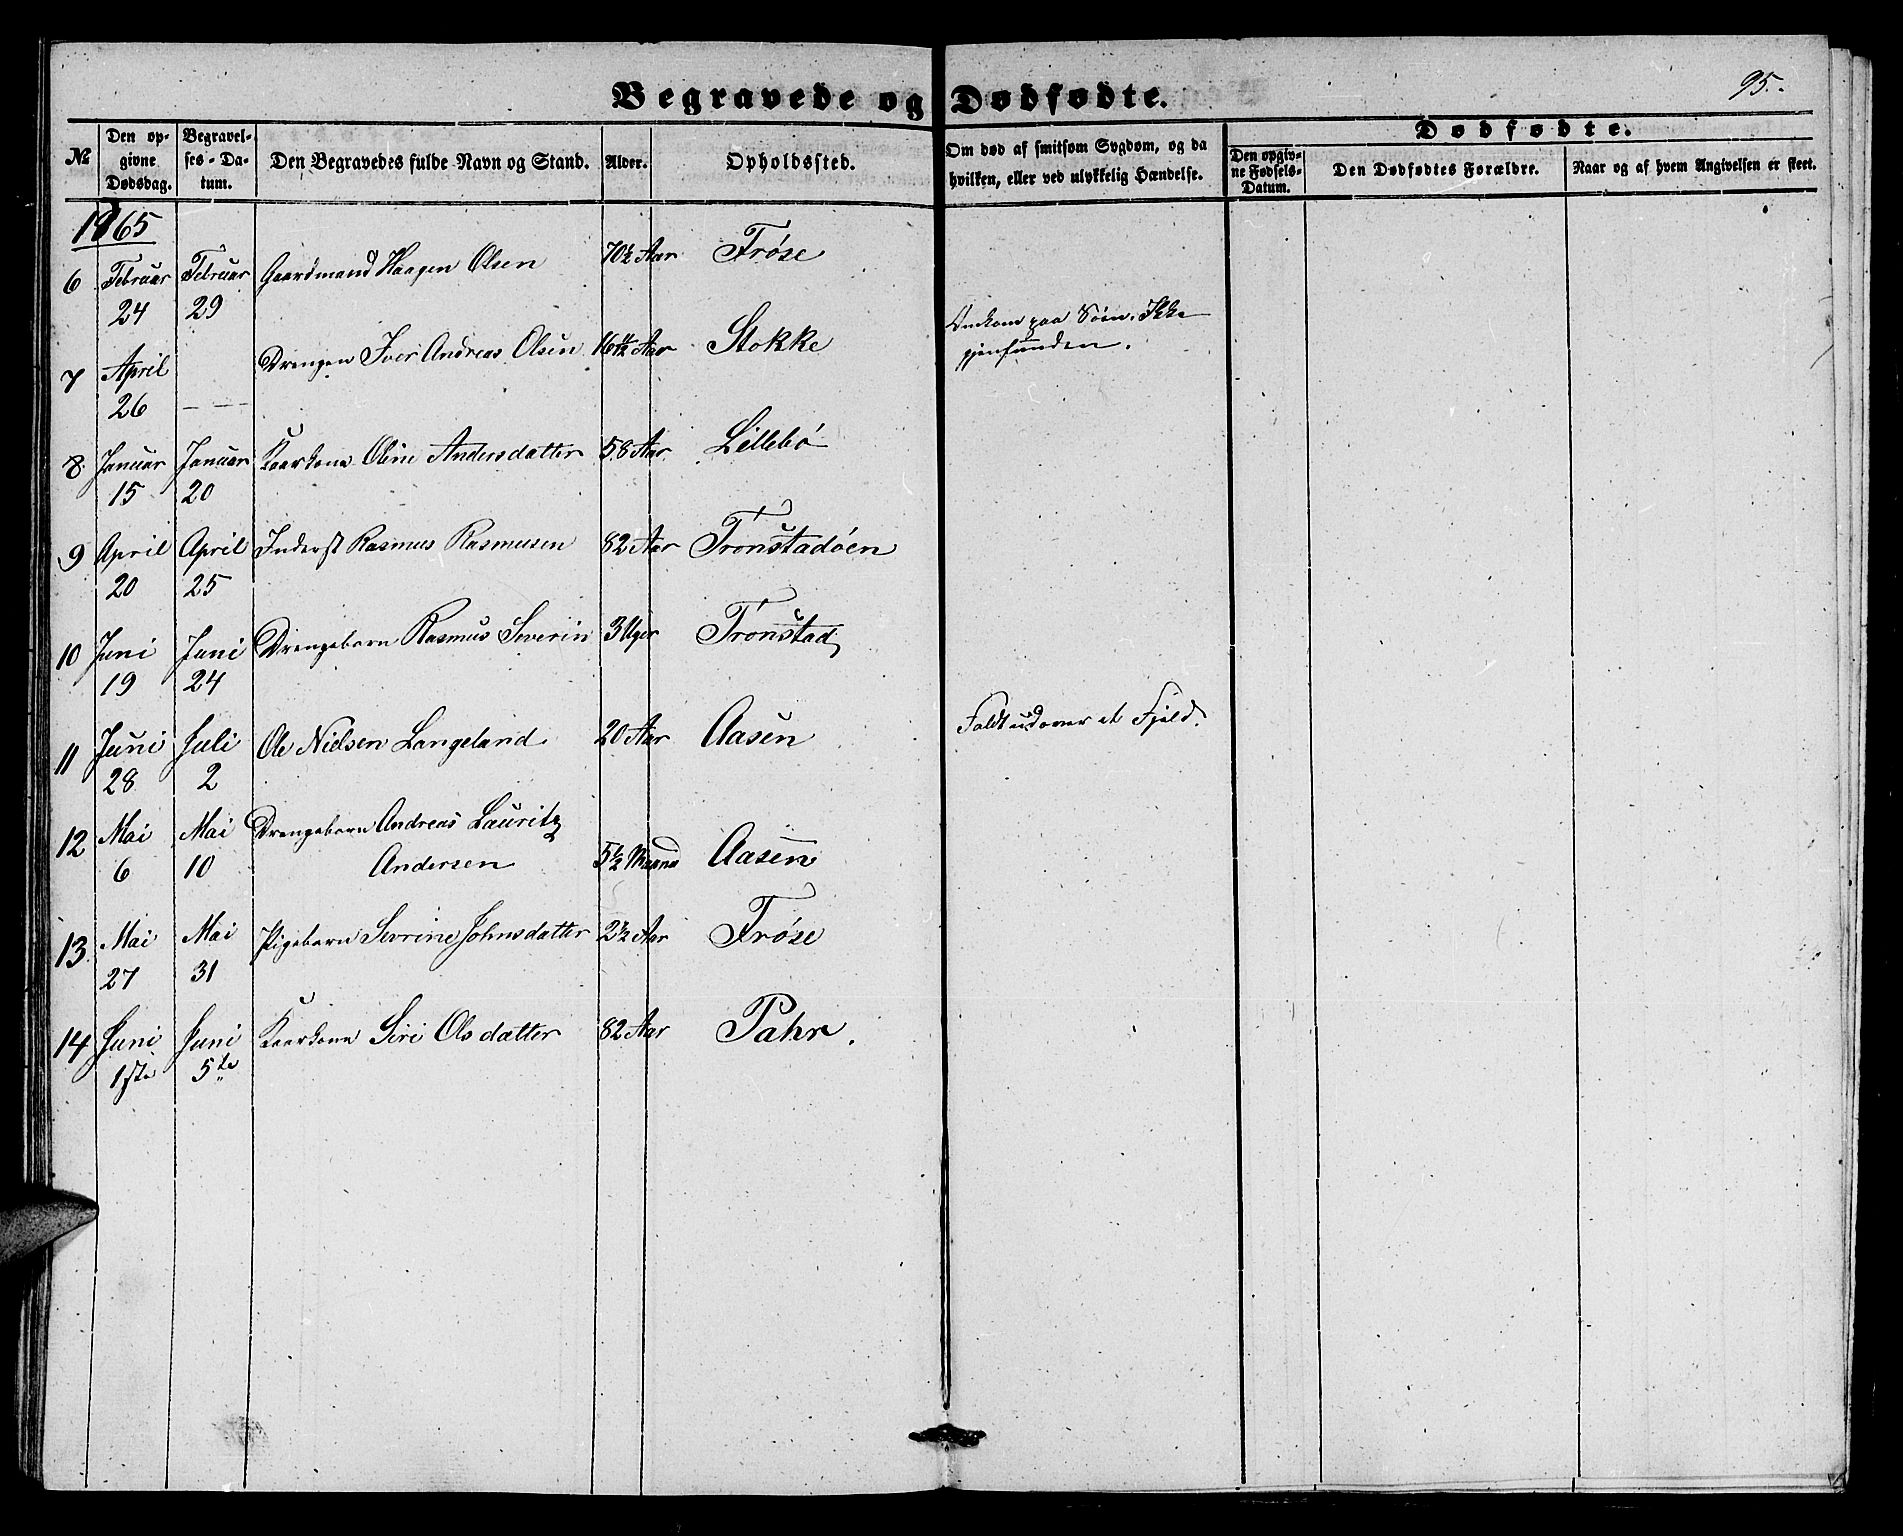 95.
Begravede og Dødfødte.
№ Den op- Begravel- Den Begravedes fulde Navn og Stand. Alder. Opholdssted. Om død af smitsom Sygdom, og da Dødfødte.
givne ses-Da- hvilken, eller ved ulykkelig Hændelse. Den opgiv- Den Dødfødtes Forældre. Naar og af hvem Angivelsen er skeet.
Dødsdag. tum. ne Fødsels-
Datum.
1865
6 Februar Februar Gaardmand Haagen Olsen 70½ Aar Frøse
24 29
7 April Drengen Iver Andreas Olsen 16 11/12 Aar Stokke Omkom paa Söen. Ikke
26 — — gjenfunden.
8. Januar Januar Kaarkone Oline Andersdatter 58 Aar Lillebø
15 20
9 April April Inderst Rasmus Rasmusen 82 Aar Tronstadöen
20 25
10 Juni Juni Drengebarn Rasmus Severin 3 Uger Tronstad
19 24
11 Juni Juli Ole Nielsen Langeland 20 Aar Aasen Faldt udover et Fjeld.
28 2
12 Mai Mai Drengebarn Andreas Lauritz
6 10 Andersen 5½ Maaned Aasen
13. Mai Mai Pigebarn Sevrine Johnsdatter 2½ Aar Frøse
27 31
14 Juni Juni Kaarkone Siri Olsdatter 82 Aar Pahr.
1ste 5te